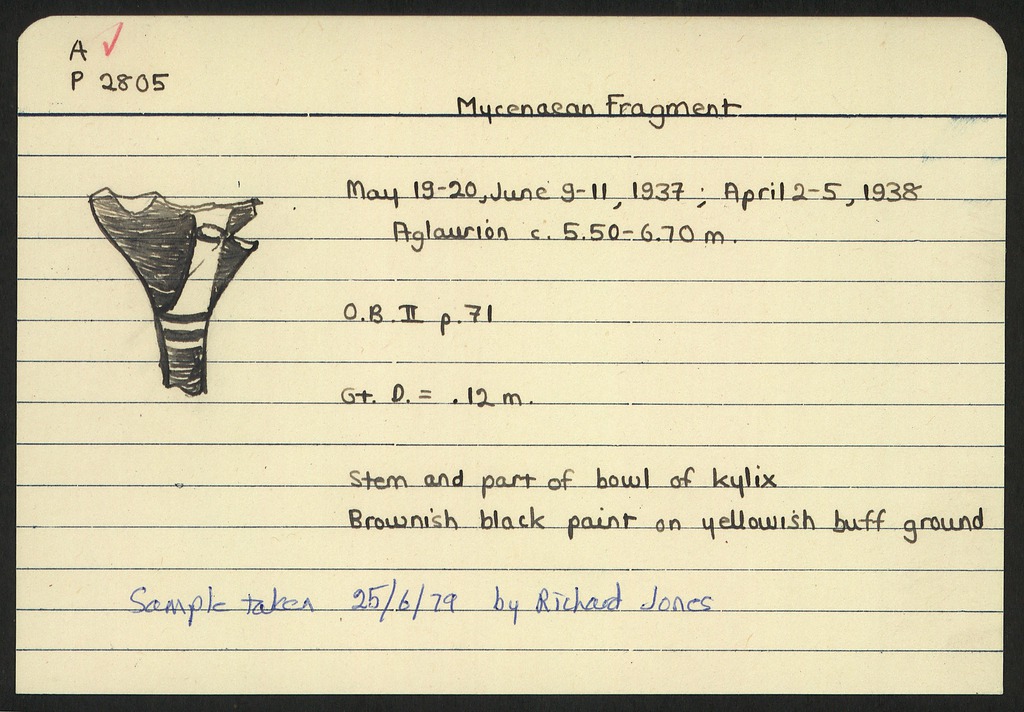 A ✓
P 2805
Mycenaean Fragment
May 19-20, June 9-11, 1937; April 2-5, 1938
Aglaurion c. 5.50-6.70 m.
O.B. II p.71
Gt. D. = .12 m.
Stem and part of bowl of kylix
Brownish black paint on yellowish buff ground
Sample taken 25/6/79 by Richard Jones